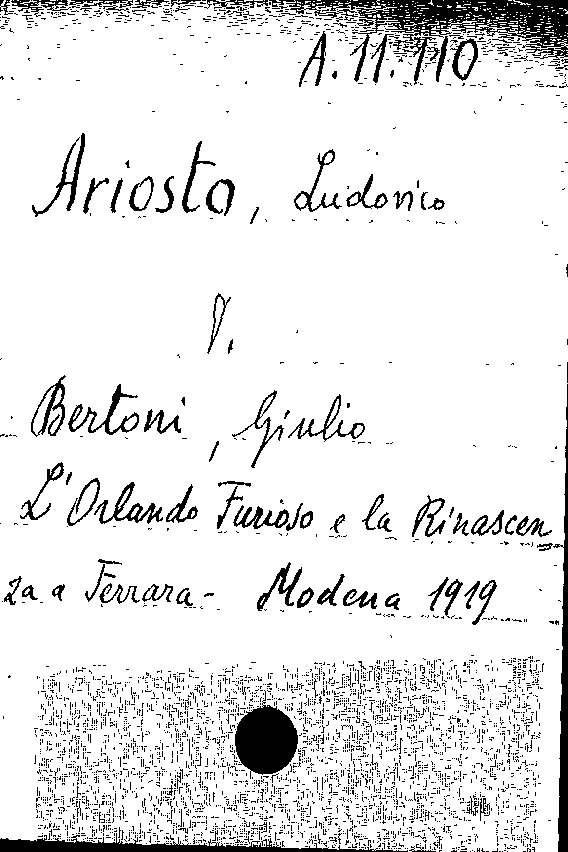 A.11.110
Ariosto, Ludovico
V.
Bertoni, Giulio
L'Orlando Furioso e la Rinascen
za a Ferrara - Modena 1919